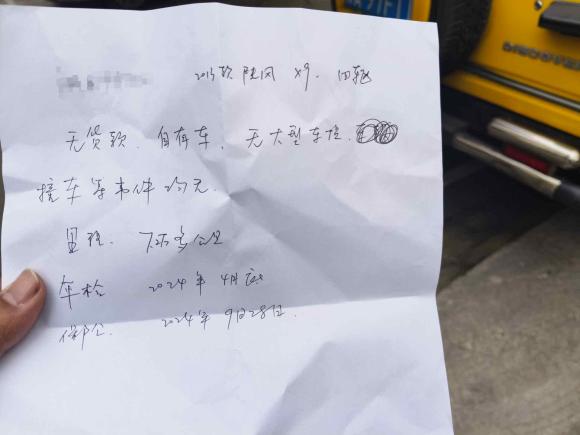 2015款 陆风 X9. 四驱
无贷款. 自存车. 无大型车损.
撞车等事件均无.
里程. 7万多公里
年检 2024年4月底
保险. 2024年9月28日.